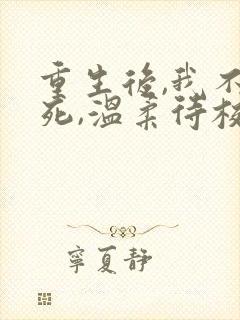 重生後,我不
死,溫柔待校
寧夏静